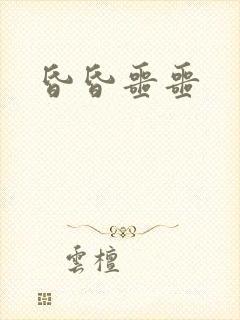 昏昏噩噩
雲檀